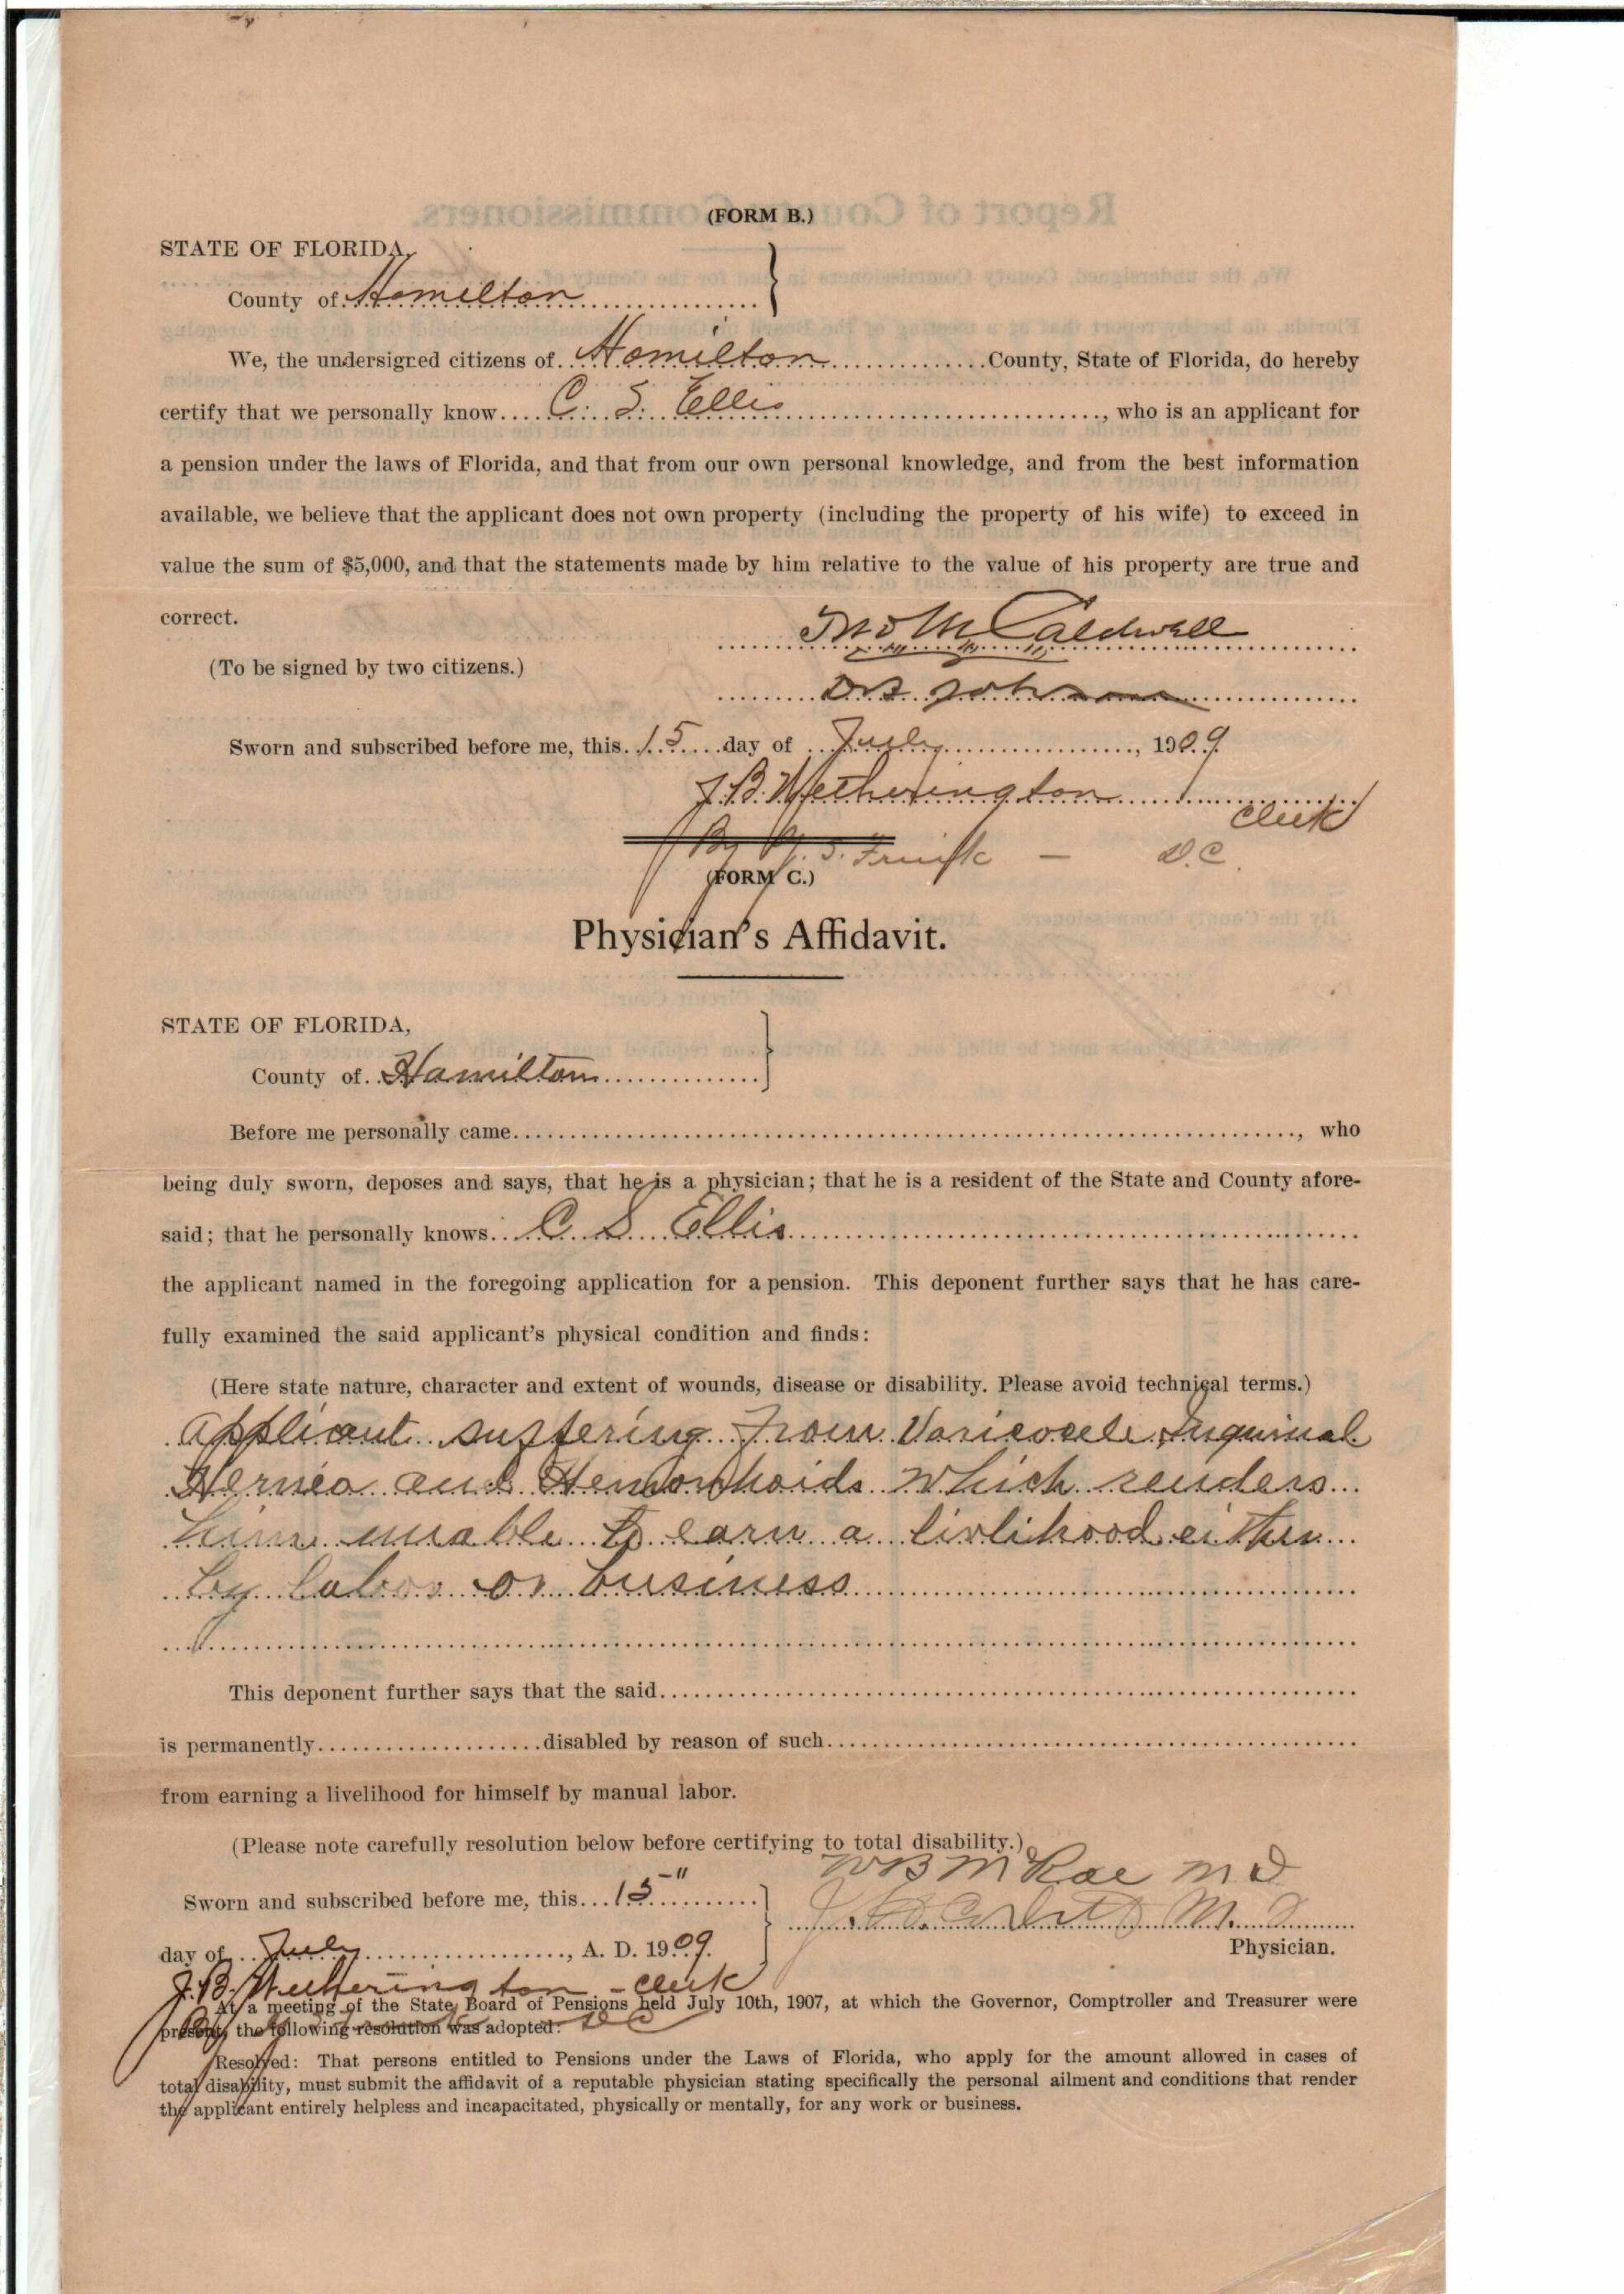 (FORM B.)
STATE OF FLORIDA,
County of Hamilton
We, the undersigred citizens of Hamilton County, State of Florida, do hereby
certify that we personally know C. S. Ellis, who is an applicant for
a pension under the laws of Florida, and that from our own personal knowledge, and from the best information
available, we believe that the applicant does not own property (including the property of his wife) to exceed in
value the sum of $5,000, and that the statements made by him relative to the value of his property are true and
correct.
Jno M Caldwell
(To be signed by two citizens.)
Sworn and subscribed before me, this 15 day of July, 1909
J. B. Wetherington
Clerk
By D.C.
(FORM C.)
Physician's Affidavit.
STATE OF FLORIDA,
County of Hamilton
Before me personally came, who
being duly sworn, deposes and says, that he is a physician; that he is a resident of the State and County afore-
said; that he personally knows C. S. Ellis
the applicant named in the foregoing application for a pension. This deponent further says that he has care-
fully examined the said applicant's physical condition and finds:
(Here state nature, character and extent of wounds, disease or disability. Please avoid technical terms.)
Applicant suffering from Varicocele, Inguinal
Hernia and Hemorrhoids which renders
him unable to earn a livlihood either
by labor or business
This deponent further says that the said
is permanently disabled by reason of such
from earning a livelihood for himself by manual labor.
(Please note carefully resolution below before certifying to total disability.)
W B McRae M D
Sworn and subscribed before me, this 15"
M. D.
day of July, A. D. 1909.
Physician.
J. B. Wetherington - Clerk
At a meeting of the State Board of Pensions held July 10th, 1907, at which the Governor, Comptroller and Treasurer were
present, the following resolution was adopted:
By D C
Resolved: That persons entitled to Pensions under the Laws of Florida, who apply for the amount allowed in cases of
total disability, must submit the affidavit of a reputable physician stating specifically the personal ailment and conditions that render
the applicant entirely helpless and incapacitated, physically or mentally, for any work or business.